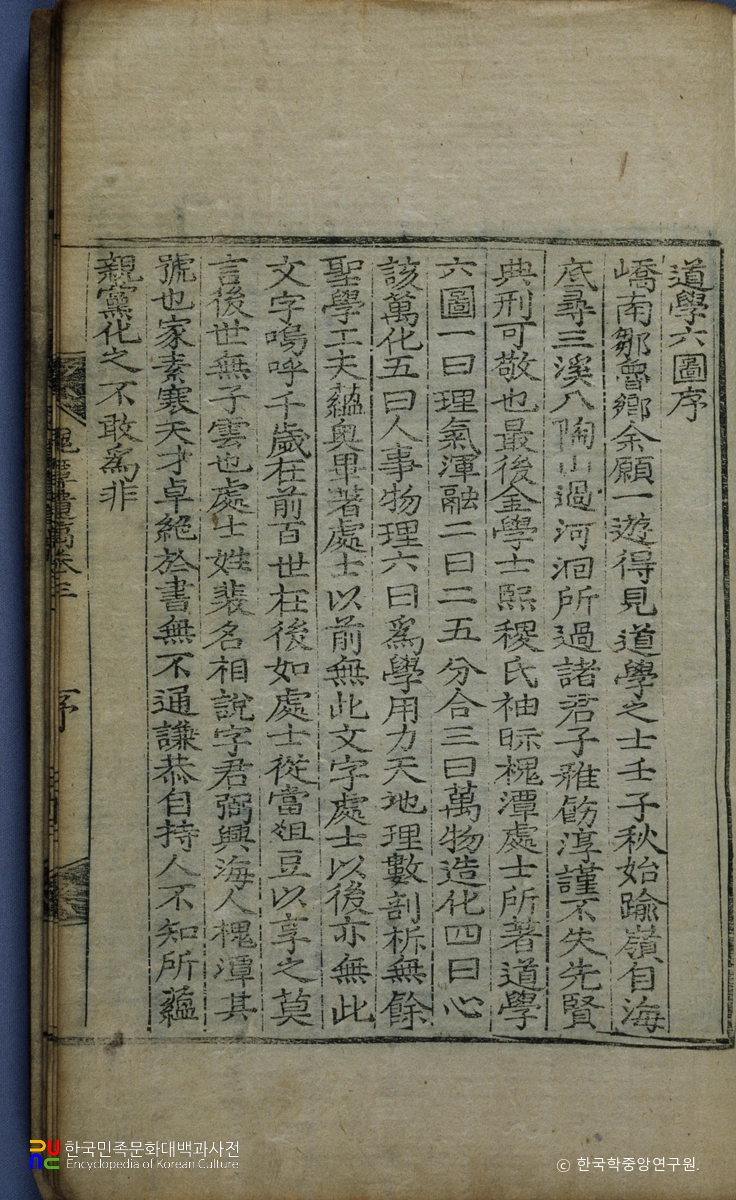 道學六圖序
嶠南鄒魯鄕余願一遊得見道學之士壬子秋始踰嶺自海
底尋三溪入陶山過河洄所過諸君子雅飭淳謹不失先賢
典刑可敬也最後金學士熙稷氏袖眎槐潭處士所著道學
六圖一曰理氣渾融二曰二五分合三曰萬物造化四曰心
該萬化五曰人事物理六曰爲學用力天地理數剖析無餘
聖學工夫蘊奧畢著處士以前無此文字處士以後亦無此
文字嗚呼千歲在前百世在後如處士從當俎豆以享之莫
言後世無子雲也處士姓裴名相說字君弼興海人槐潭其
號也家素寒天才卓絶於書無不通謙恭自持人不知所蘊
親黨化之不敢爲非
槐潭遺稿卷三 序
한국민족문화대백과사전
Encyclopedia of Korean Culture
ⓒ 한국학중앙연구원.